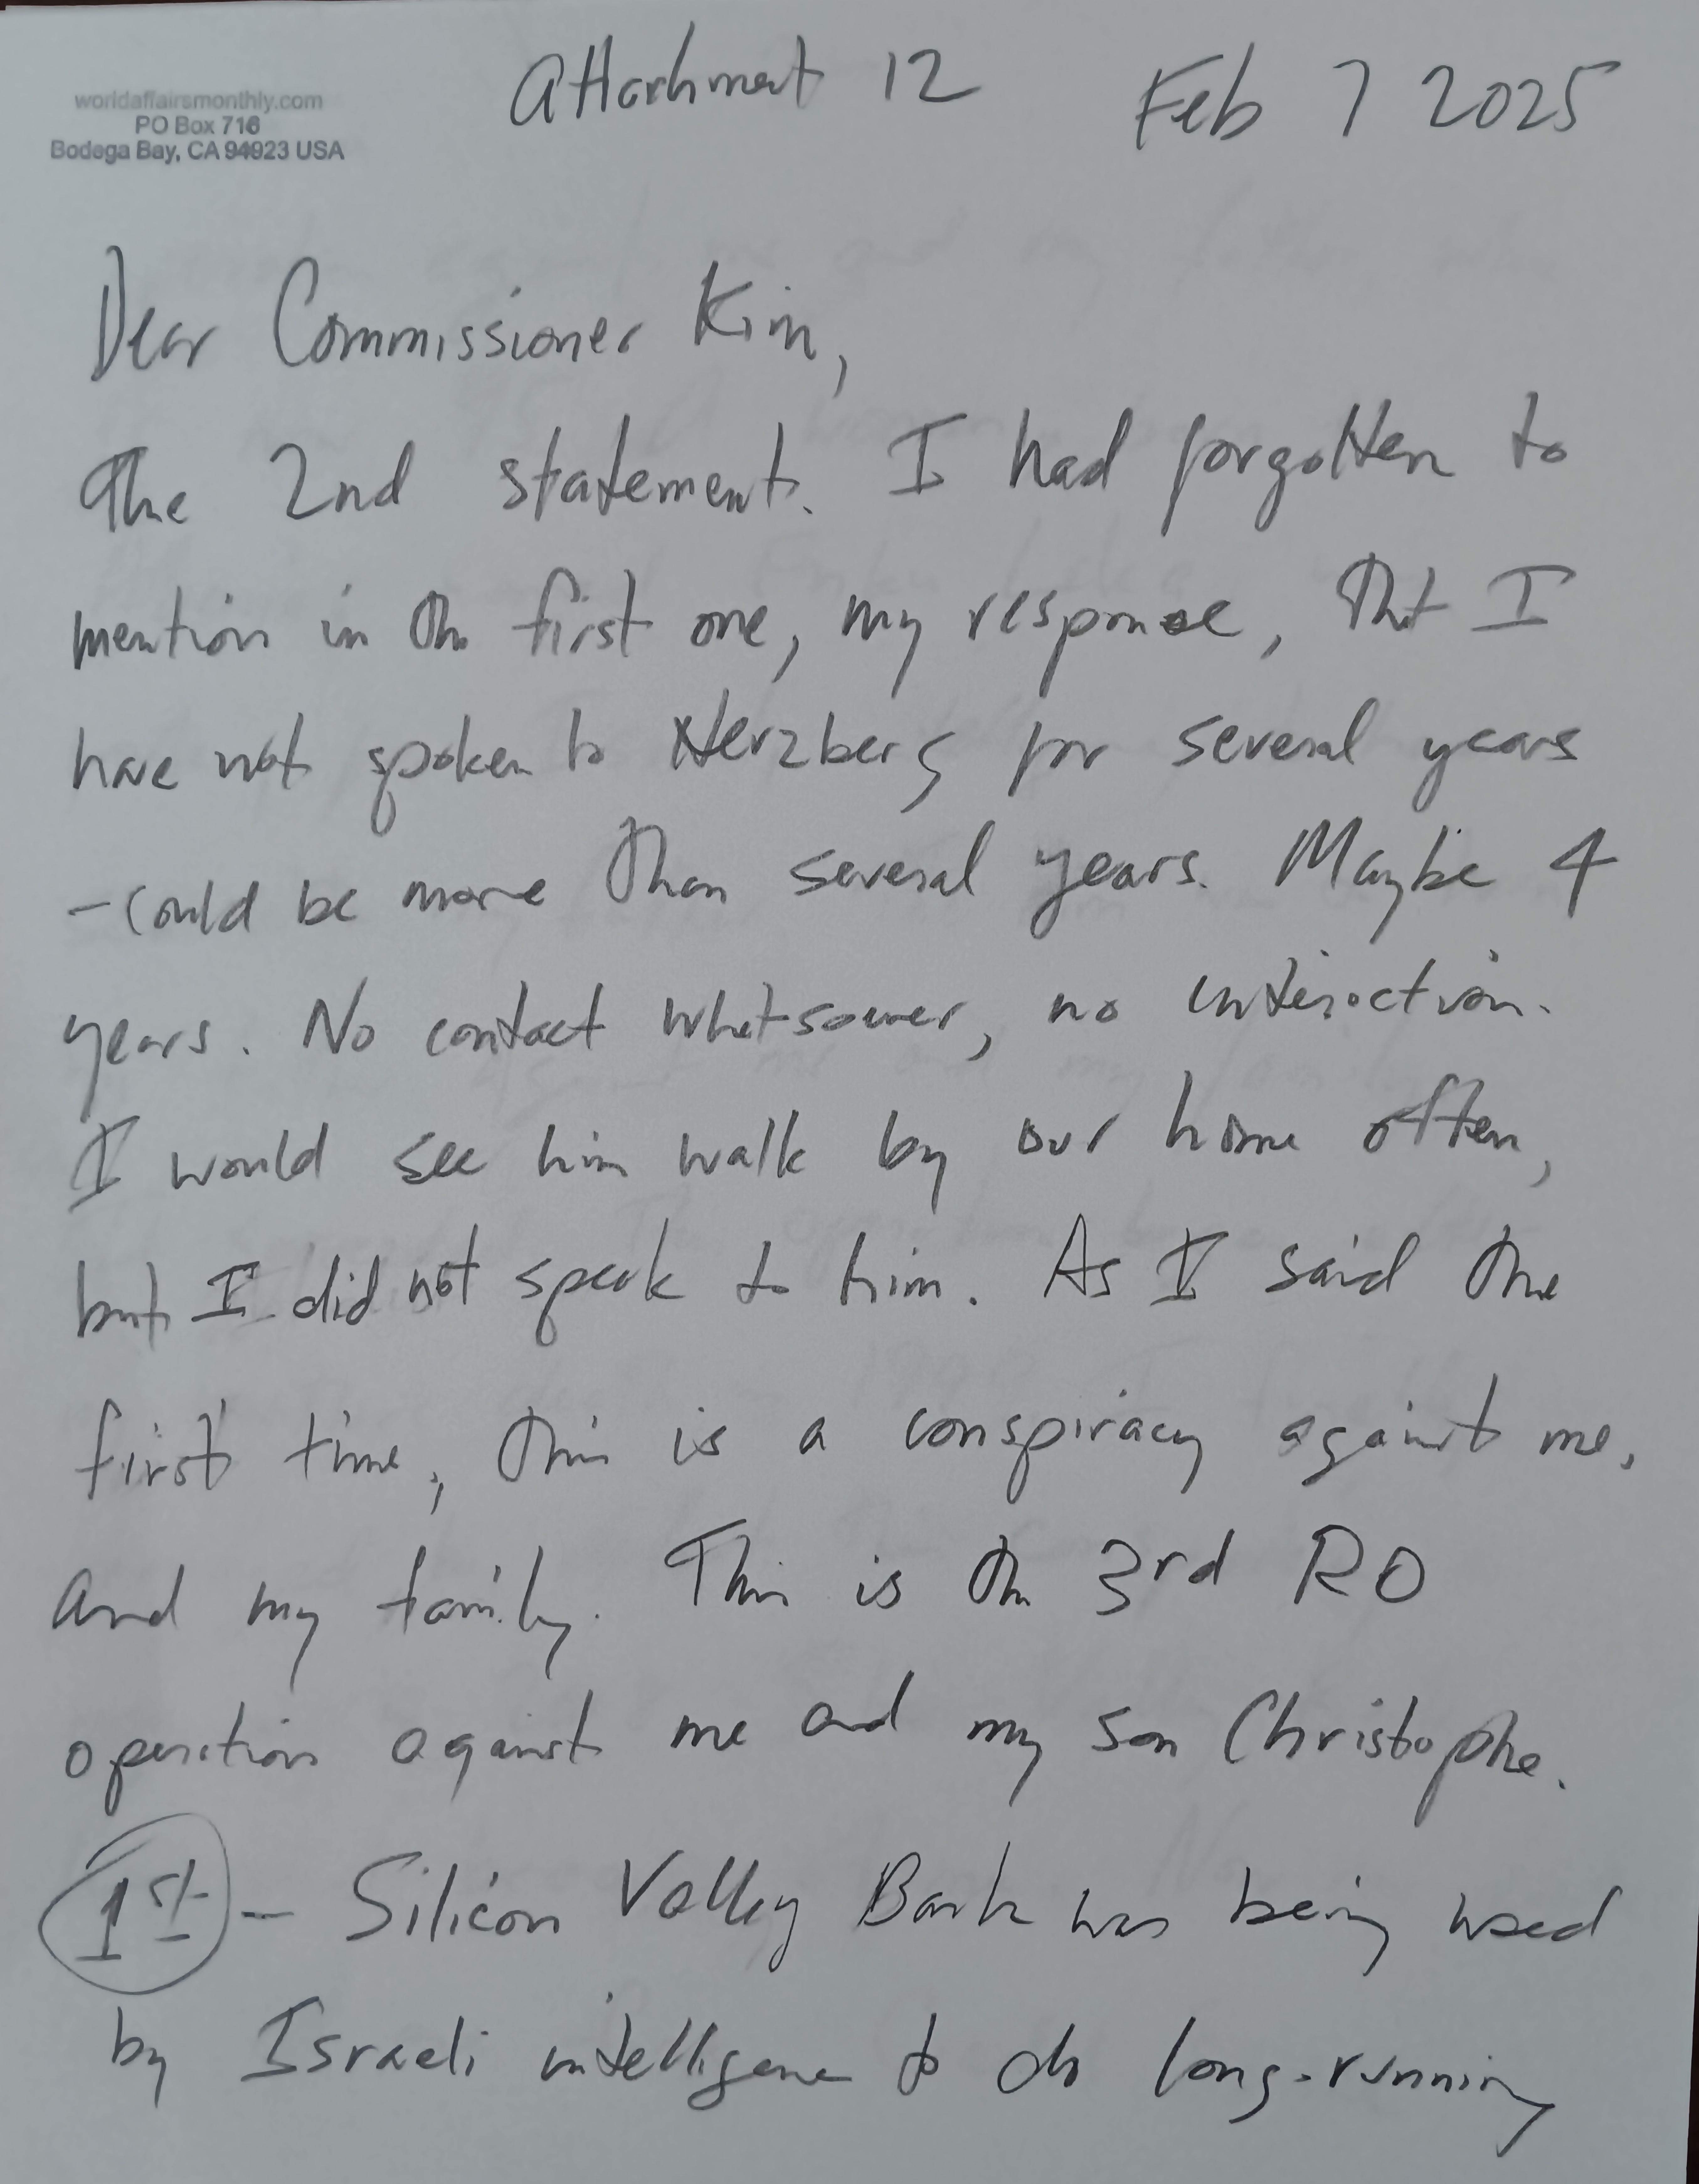 worldaffairsmonthly.com
PO Box 716
Bodega Bay, CA 94923 USA
Attachment 12 Feb 7 2025
Dear Commissioner Kim,
The 2nd statement. I had forgotten to
mention in the first one, my response, that I
have not spoken to Herzberg for several years
- could be more than several years. Maybe 4
years. No contact whatsoever, no interaction.
I would see him walk by our home often,
but I did not speak to him. As I said the
first time, this is a conspiracy against me,
and my family. This is the 3rd RO
operation against me and my son Christophe.
1st - Silicon Valley Bank was being used
by Israeli intelligence to do long-running